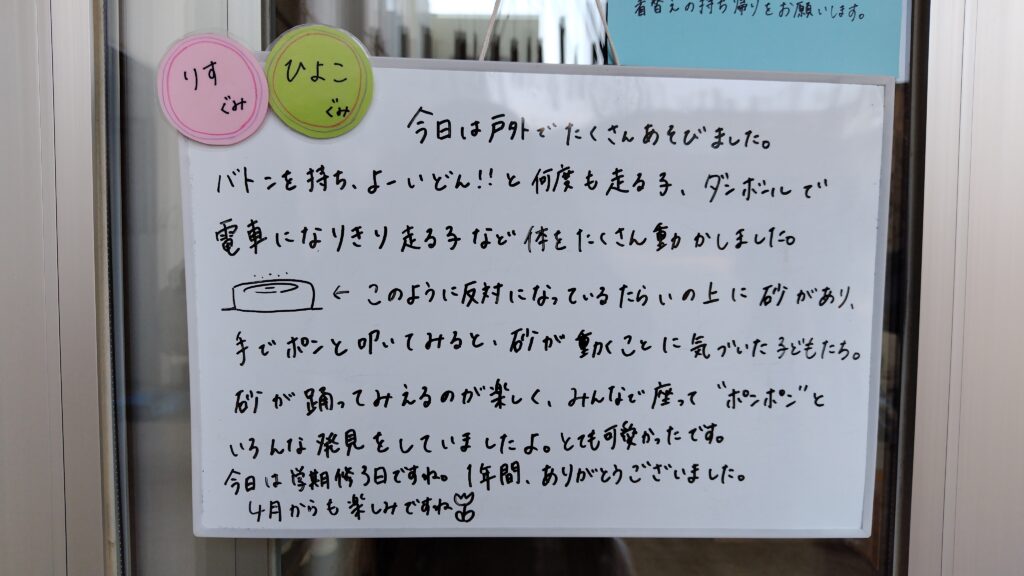 着替えの持ち帰りをお願いします。
りす
ぐみ
ひよこ
ぐみ
今日は戸外でたくさんあそびました。
バトンを持ち、よーいどん!!と何度も走る子、ダンボールで
電車になりきり走る子など体をたくさん動かしました。
← このように反対になっているたらいの上に砂があり、
手でポンと叩いてみると、砂が動くことに気づいた子どもたち。
砂が踊ってみえるのが楽しく、みんなで座って"ポンポン"と
いろんな発見をしていましたよ。とても可愛かったです。
今日は学期修了日ですね。1年間、ありがとうございました。
4月からも楽しみですね